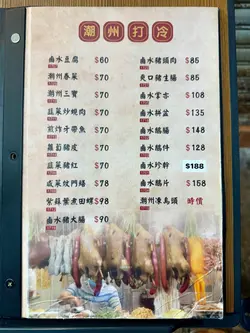 潮州打冷
鹵水豆腐 $60
潮州春菜 $70
潮州三寶 $70
韮菜炒燒肉 $70
煎炸牙帶魚 $70
蘿蔔豬皮 $70
韮菜豬紅 $70
咸菜炆門鱔 $78
紫蘇紫煮田螺 $98
鹵水豬大腸 $90
鹵水豬頭肉 $85
爽口豬生腸 $85
鹵水掌亦 $108
鹵水拼盆 $135
鹵水鵝腸 $148
鹵水鵝件 $128
鹵水珍肝 $188
鹵水鵝片 $158
潮州凍烏頭 時價